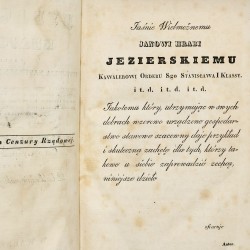 Jaśnie Wielmożnemu
JANOWI HRABI
JEZIERSKIEMU
KAWALEROWI ORDERU Sgo STANISŁAWA I KLASSY.
i t. d. i t. d. i t. d.
Jako temu który, utrzymując w swych
dobrach wzorowo urządzone gospodar-
stwo stanowe szacowny daje przykład
i skuteczną zachętę dla tych, którzy ta-
kowe u siebie zaprowadzić zechcą,
niniejsze dzieło
Autor
Cenzury Rządowej